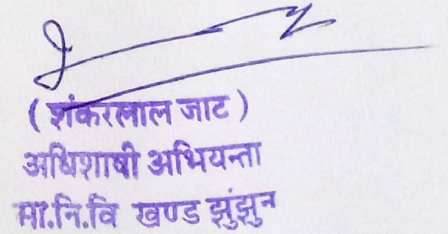 (शंकरलाल जाट)
अधिशाषी अभियन्ता
सा.नि.वि खण्ड झुंझुन